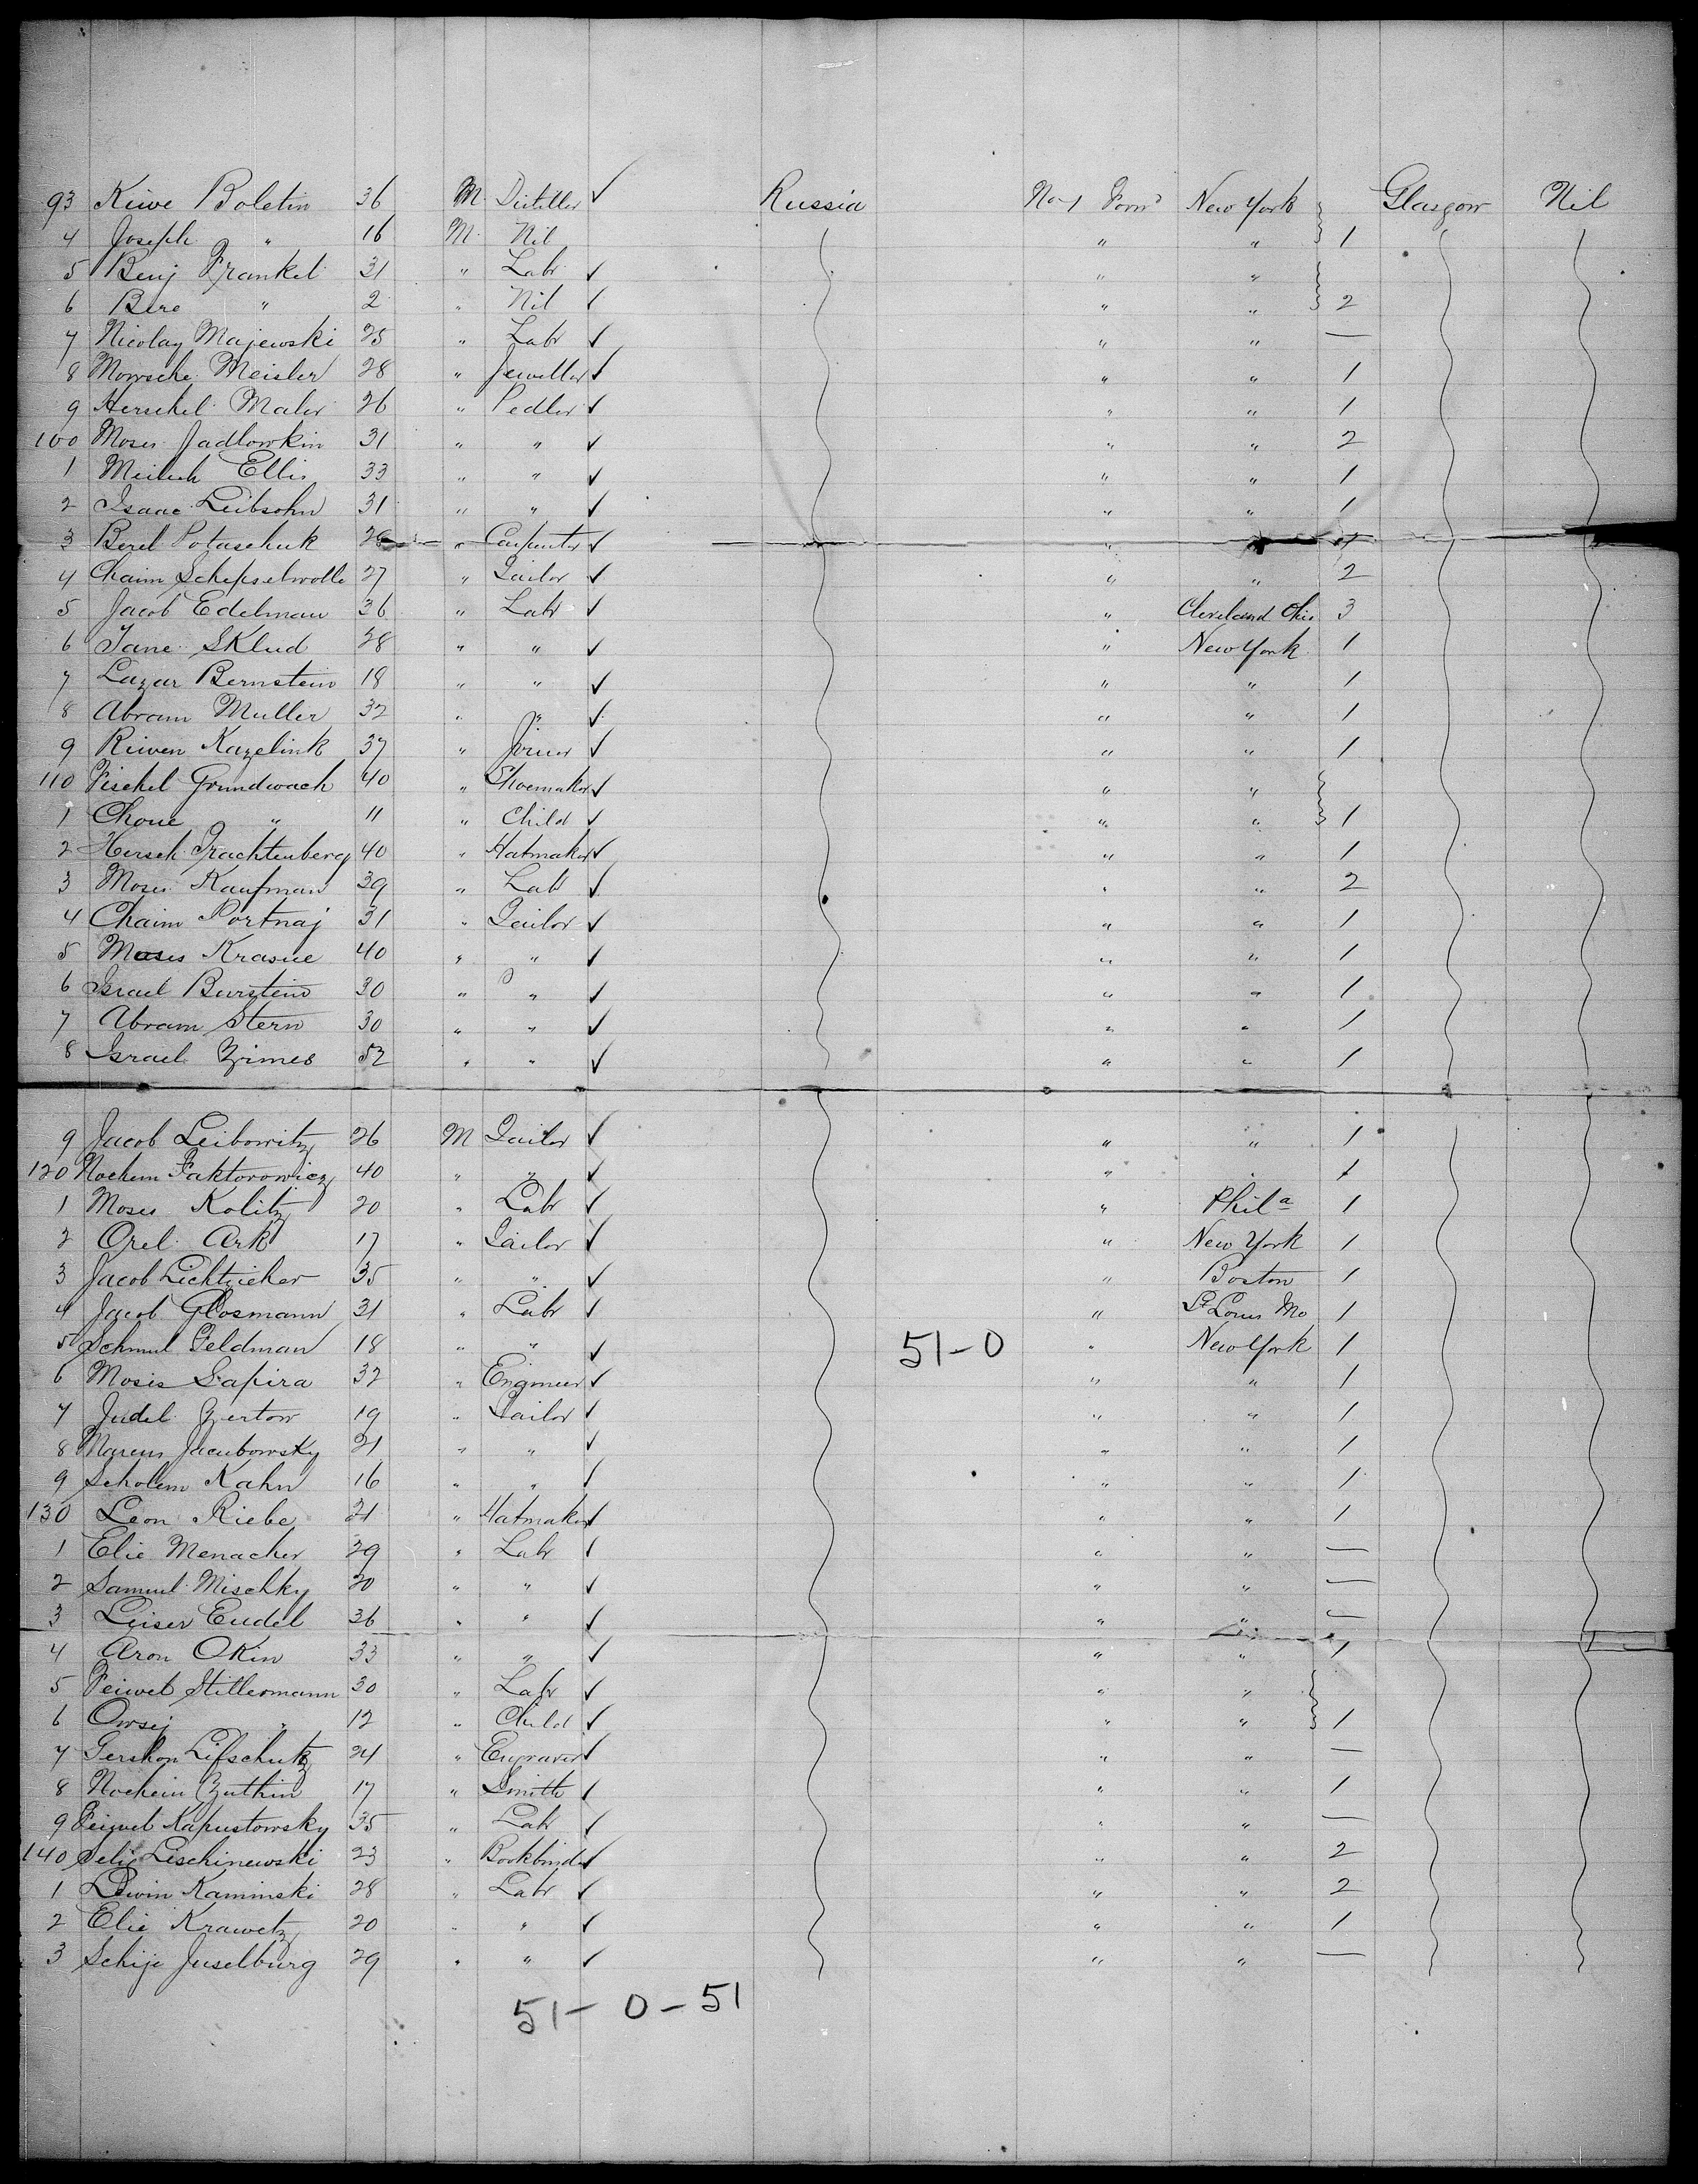 93 Keiwe Boletin 36 M. Distiller ✓ Russia No 1 Forwd New York Glasgow Nil
4 Joseph " 16 M. Nil " " 1
5 Benj Frankel 31 " Labr ✓ " "
6 Bere " 2 " Nil ✓ " " 2
7 Nicolay Majewski 25 " Labr ✓ " " —
8 Mowsche Meisler 28 " Jeweller ✓ " " 1
9 Herschel Maler 26 " Pedler ✓ " " 1
100 Moses Jadlowkin 31 " " ✓ " " 2
1 Meilech Ellis 33 " " ✓ " " 1
2 Isaac Leibsohn 31 " " ✓ " " 1
3 Berel Potaschuk " Carpenter ✓ " "
4 Chaim Schepselwolle 27 " Tailor ✓ " " 2
5 Jacob Edelman 36 " Labr ✓ " Cleveland Ohio 3
6 Jane Sklud 28 " " ✓ " New York 1
7 Lazar Bernstein 18 " " ✓ " " 1
8 Abram Muller 32 " " ✓ " " 1
9 Riwen Kazelink 37 " Joiner ✓ " " 1
110 Fischel Grundwach 40 " Shoemaker ✓ " "
1 Chone " 11 " Child ✓ " " 1
2 Hersch Trachtenberg 40 " Hatmaker ✓ " " 1
3 Moses Kaufman 39 " Labr ✓ " " 2
4 Chaim Portnaj 31 " Tailor ✓ " " 1
5 Moses Krasne 40 " " ✓ " " 1
6 Israel Burstein 30 " " ✓ " " 1
7 Abram Stern 30 " " ✓ " " 1
8 Israel Zimes 52 " " ✓ " " 1
9 Jacob Leibowitz 26 M Tailor ✓ " " 1
120 Nochem Faktorowicz 40 " " ✓ " " 1
1 Moses Kolitz 20 " Labr ✓ " Phila 1
2 Orel Ark 17 " Tailor ✓ " New York 1
3 Jacob Lichtzieher 35 " " ✓ " Boston 1
4 Jacob Glosmann 31 " Labr ✓ " St Louis Mo 1
5 Schmul Feldman 18 " " ✓ 51-0 " New York 1
6 Moses Sapira 32 " Engineer ✓ " " 1
7 Judel Zertow 19 " Tailor ✓ " " 1
8 Marcus Jacubowsky 21 " " ✓ " " 1
9 Scholem Kahn 16 " " ✓ " " 1
130 Leon Riebe 21 " Hatmaker ✓ " " 1
1 Elie Menacher 29 " Labr ✓ " " —
2 Samuel Mischky 20 " " ✓ " " —
3 Leiser Eudel 36 " " ✓ " " —
4 Aron Okin 33 " " ✓ " " 1
5 Feiwel Stillermann 30 " Labr ✓ " "
6 Owsej " 12 " Child ✓ " " 1
7 Gershon Lifschutz 24 " Engraver ✓ " " —
8 Nochem Zuthin 17 " Smith ✓ " " 1
9 Feiwel Kapustowsky 35 " Labr ✓ " " —
140 Selig Lischinewski 23 " Bookbinder ✓ " " 2
1 Lewin Kaminski 28 " Labr ✓ " " 2
2 Elie Krawetz 20 " " ✓ " " 1
3 Schije Juselburg 29 " " ✓ " " —
51 - 0 - 51